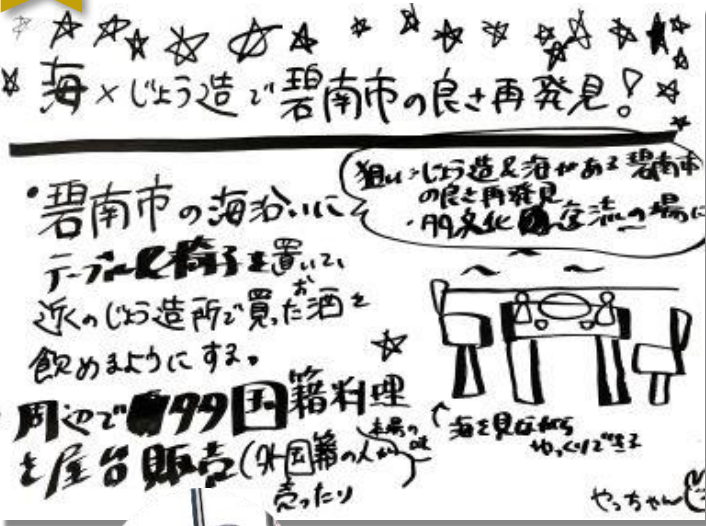 海×じょう造で碧南市の良さ再発見!
狙い:じょう造&海がある碧南市
の良さ再発見
・多文化交流の場に
・碧南市の海沿いに
テーブル&椅子を置いて、
近くのじょう造所で買ったお酒を
飲めるようにする。
周辺で多国籍料理
を屋台販売(外国籍の人が
本場の味
売ったり
海を見ながら
ゆっくりできる
やっちゃん